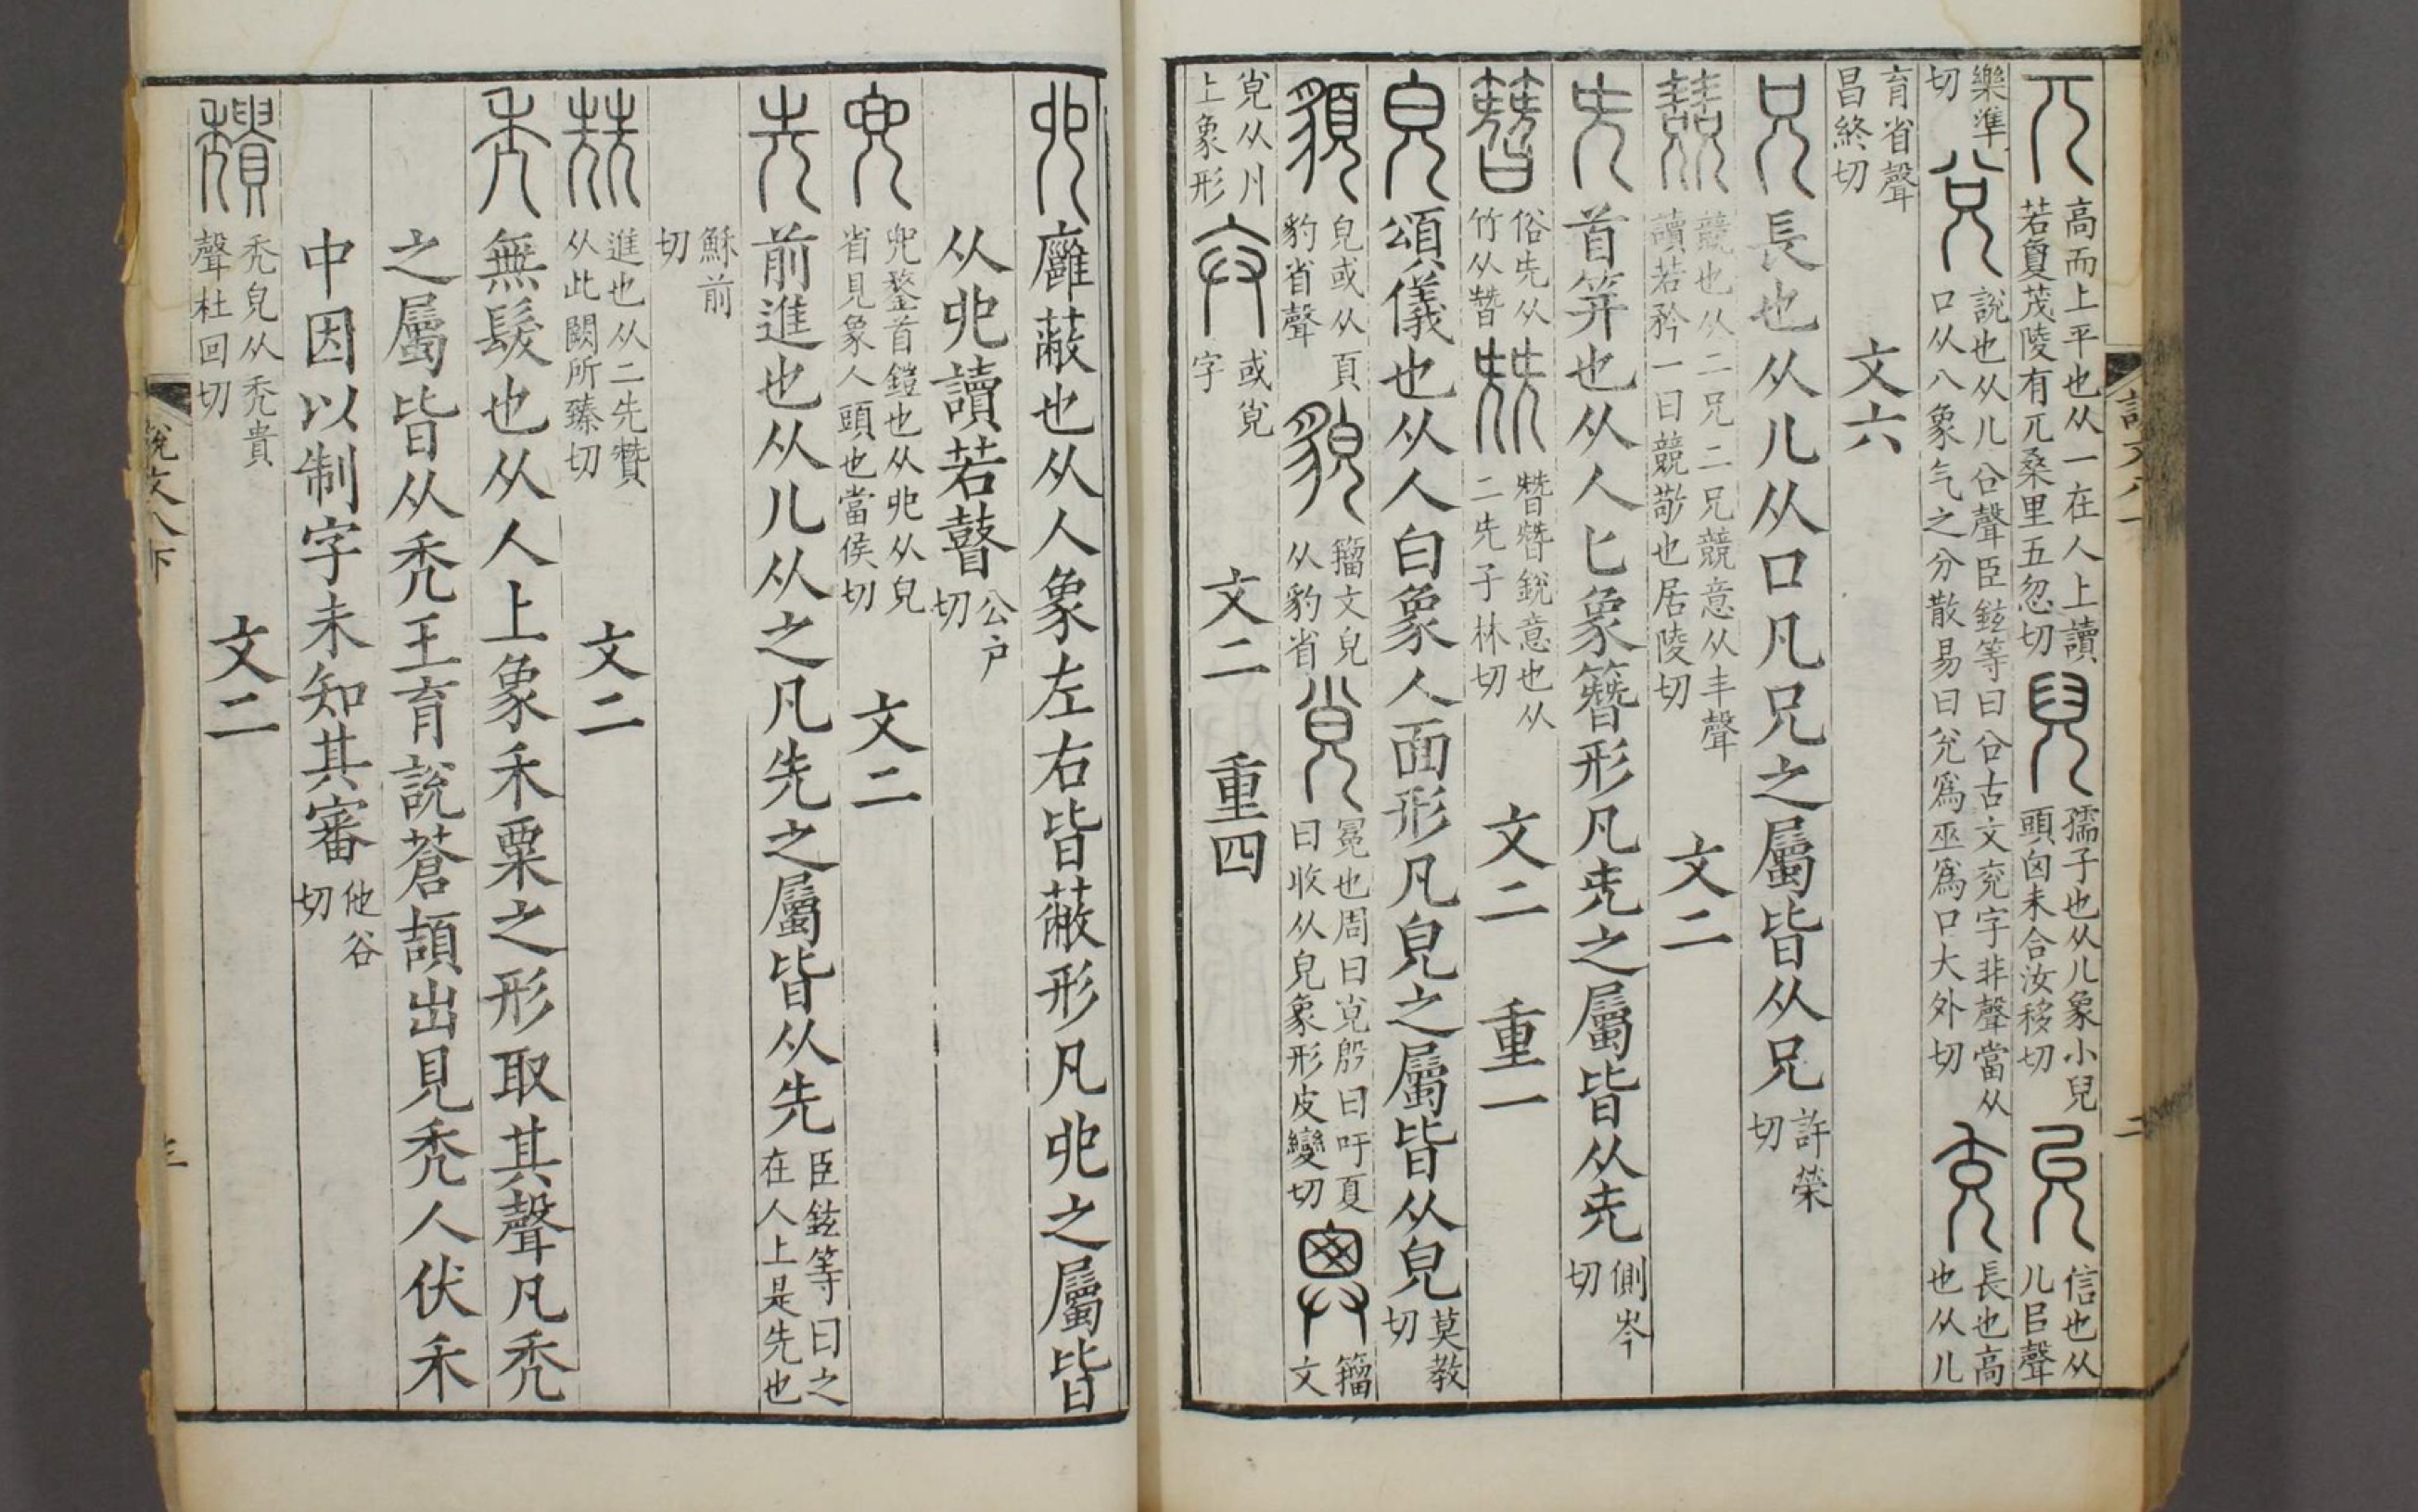 兀高而上平也从一在人上讀若敻茂陵有兀桑里五忽切兒孺子也从儿象小兒頭囟未合汝移切允信也从儿㠯聲
樂準切兌說也从儿㕣聲臣鉉等曰㕣古文兖字非聲當从口从八象气之分散易曰兌爲巫爲口大外切充長也高也从儿
育省聲昌終切 文六
兄長也从儿从口凡兄之屬皆从兄許榮切
競競也从二兄二兄競意从丰聲讀若矜一曰競敬也居陵切 文二
兂首笄也从人匕象簪形凡兂之屬皆从兂側岑切
簪俗兂从竹从朁兓朁朁銳意也从二兂子林切 文二 重一
皃頌儀也从人白象人面形凡皃之屬皆从皃莫教切
䫉皃或从頁豹省聲貌籀文皃从豹省覍冕也周曰覍殷曰吁夏曰收从皃象形皮變切𢍍籀文
覍从廾上象形弁或覍字 文二 重四
𠑹廱蔽也从人象左右皆蔽形凡𠑹之屬皆
从𠑹讀若瞽公戶切
兜兜鍪首鎧也从𠑹从皃省皃象人頭也當侯切 文二
先前進也从儿从之凡先之屬皆从先臣鉉等曰之在人上是先也
穌前切
兟進也从二先贊从此闕所臻切 文二
禿無髮也从人上象禾粟之形取其聲凡禿
之屬皆从禿王育說蒼頡出見禿人伏禾
中因以制字未知其審他谷切
穨禿皃从禿貴聲杜回切 文二
說文八下
三